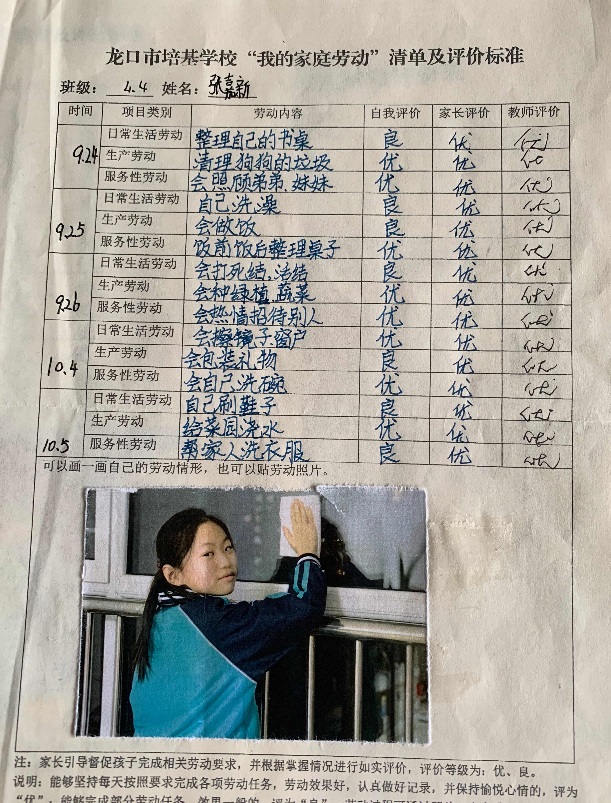 龙口市培基学校“我的家庭劳动”清单及评价标准
班级：4.4 姓名：张嘉新
时间 项目类别 劳动内容 自我评价 家长评价 教师评价
日常生活劳动 整理自己的书桌 良 优 优
9.24 生产劳动 清理狗狗的垃圾 优 优 优
服务性劳动 会照顾弟弟、妹妹 优 优 优
日常生活劳动 自己洗澡 良 优 优
9.25 生产劳动 会做饭 良 优 优
服务性劳动 饭前饭后整理桌子 优 优 优
日常生活劳动 会打死结、活结 良 优 优
生产劳动 会种绿植、蔬菜 优 优 优
9.26 服务性劳动 会热情招待别人 优 优 优
日常生活劳动 会擦镜子、窗户 优 优 优
10.4 生产劳动 会包装礼物 良 优 优
服务性劳动 会自己洗碗 优 优 优
日常生活劳动 自己刷鞋子 良 优 优
生产劳动 给菜园浇水 优 优 优
10.5 服务性劳动 帮家人洗衣服 良 优 优
可以画一画自己的劳动情形，也可以贴劳动照片。
注：家长引导督促孩子完成相关劳动要求，并根据掌握情况进行如实评价，评价等级为：优、良。
说明：能够坚持每天按照要求完成各项劳动任务，劳动效果好，认真做好记录，并保持愉悦心情的，评为
“优”；能够完成部分劳动任务，效果一般的，评为“良”。